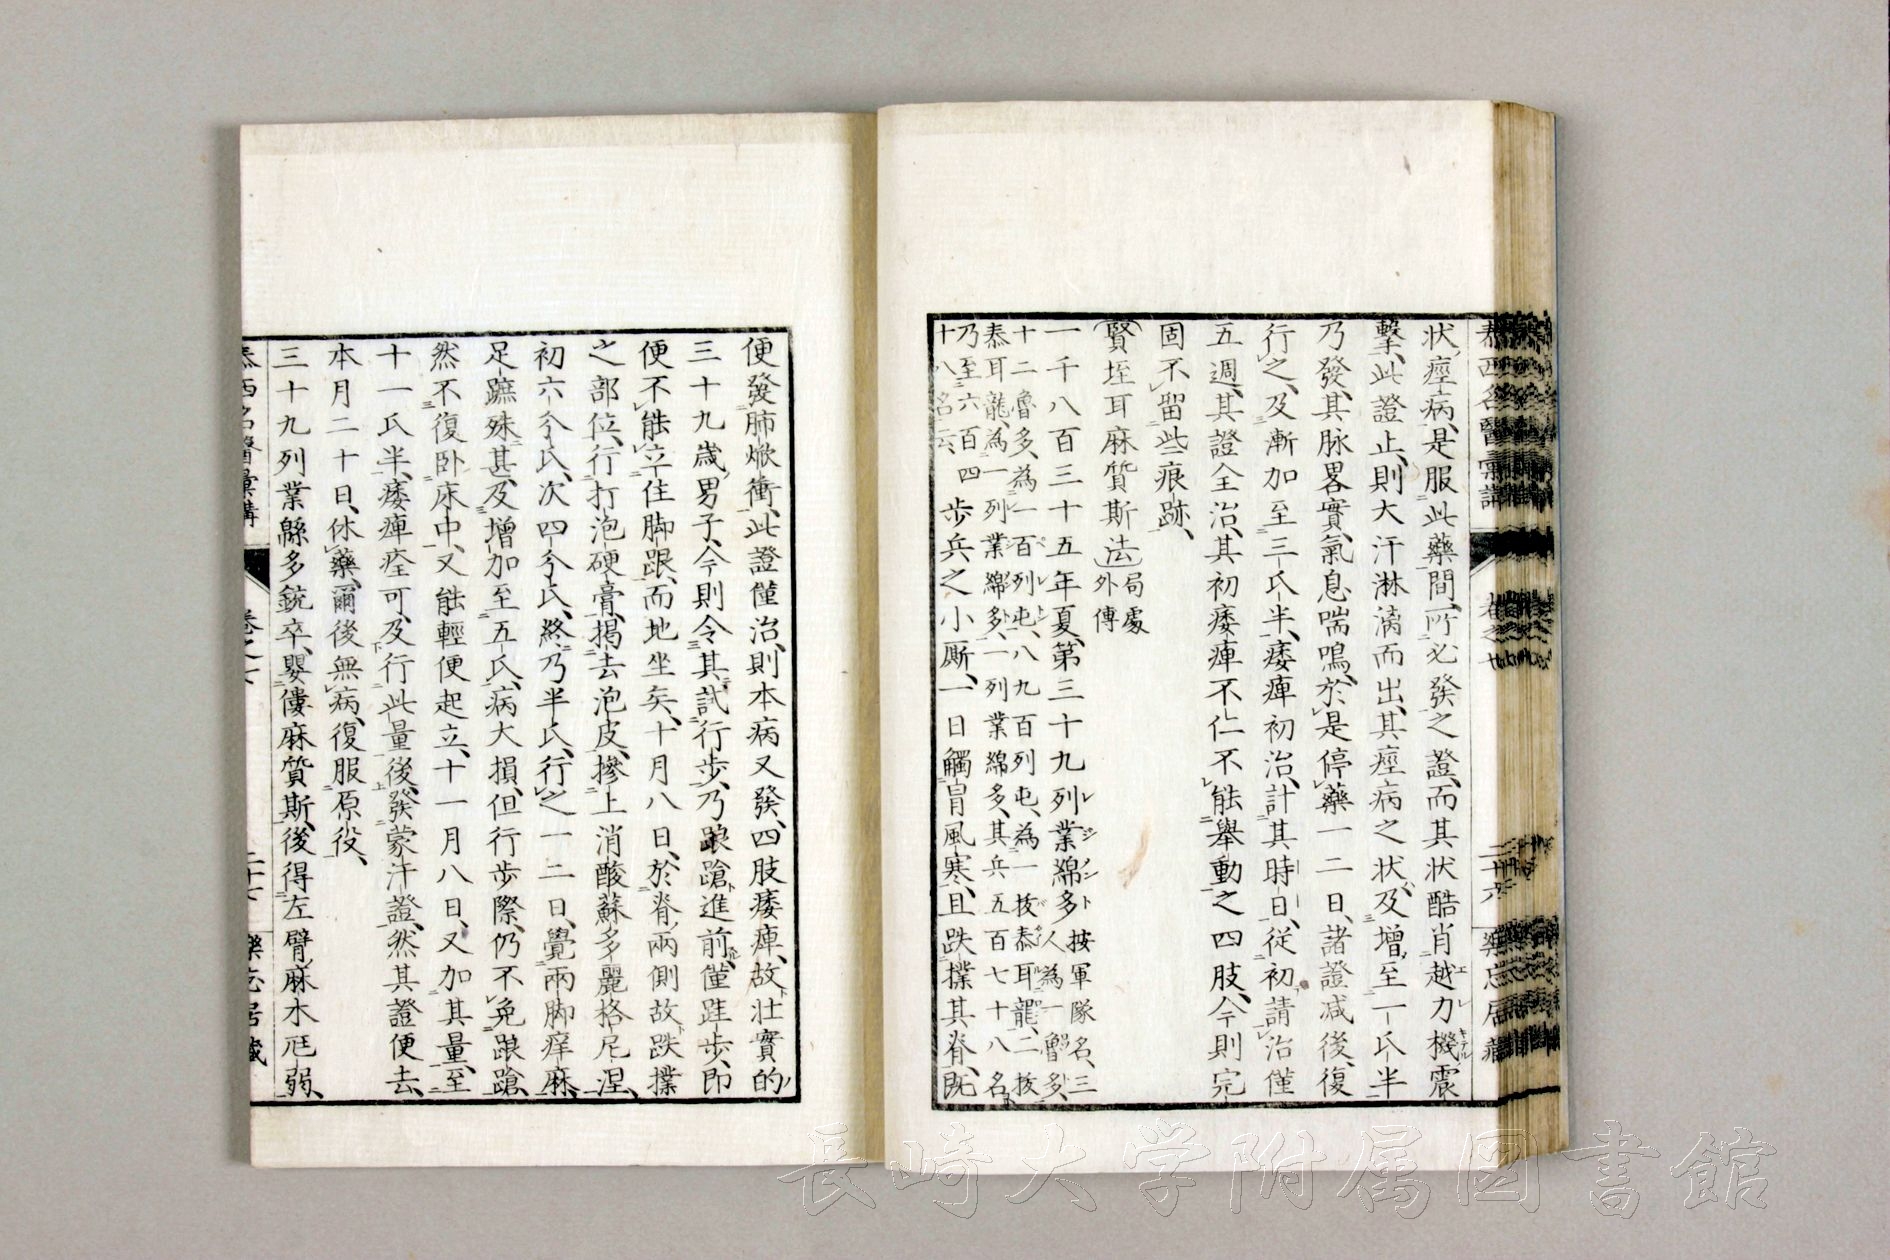 泰西名醫彙講
二十六
樂忘居藏
状、痙病、是服此藥間、所必發之證、而其状酷肖越力機震
擊、此證止、則大汗淋漓而出、其痙病之状、及増至一氏半
乃發、其脉畧實、氣息喘鳴、於是停藥一二日、諸證減後、復
行之、及漸加至三氏半、痿痺初治、計其時日、從初請治僅
五週、其證全治、其初痿痺不仁不能舉動之四肢、今則完
固不留些痕跡、
賢垤耳麻質斯法 局處外傳
一千八百三十五年夏、第三十九列業綿多 按軍隊名、三
十二魯多、為一百列屯、八九百列屯、為一拔泰耳龍、二拔
泰耳龍、為一列業綿多、一列業綿多、其兵五百七十八名
乃至六百四
十八名云 步兵之小厮、一日觸冒風寒、且跌撲其脊、既
便發肺焮衝、此證僅治、則本病又發、四肢痿痺、故壮實的
三十九歳男子、今則令其試行步、乃踉蹌進前、僅跬步、即
便不能立住脚跟、而地坐矣、十月八日、於脊兩側故跌撲
之部位、行打泡硬膏、揭去泡皮、摻上消酸蘇多麗格尼涅、
初六分氏、次四分氏、終乃半氏、行之一二日、覺兩脚痒麻、
足蹠殊甚、及增加至五氏、病大損、但行步際、仍不免踉蹌、
然不復卧床中、又能輕便起立、十一月八日、又加其量、至
十一氏半、痿痺痊可、及行此量後、發蒙汗證、然其證便去、
本月二十日、休藥、爾後無病、復服原役、
三十九列業緜多銃卒、嬰僂麻質斯、後得左臂麻木尪弱、
泰西名醫彙講
卷之七
二十七
樂忘居藏
長崎大学附属図書館